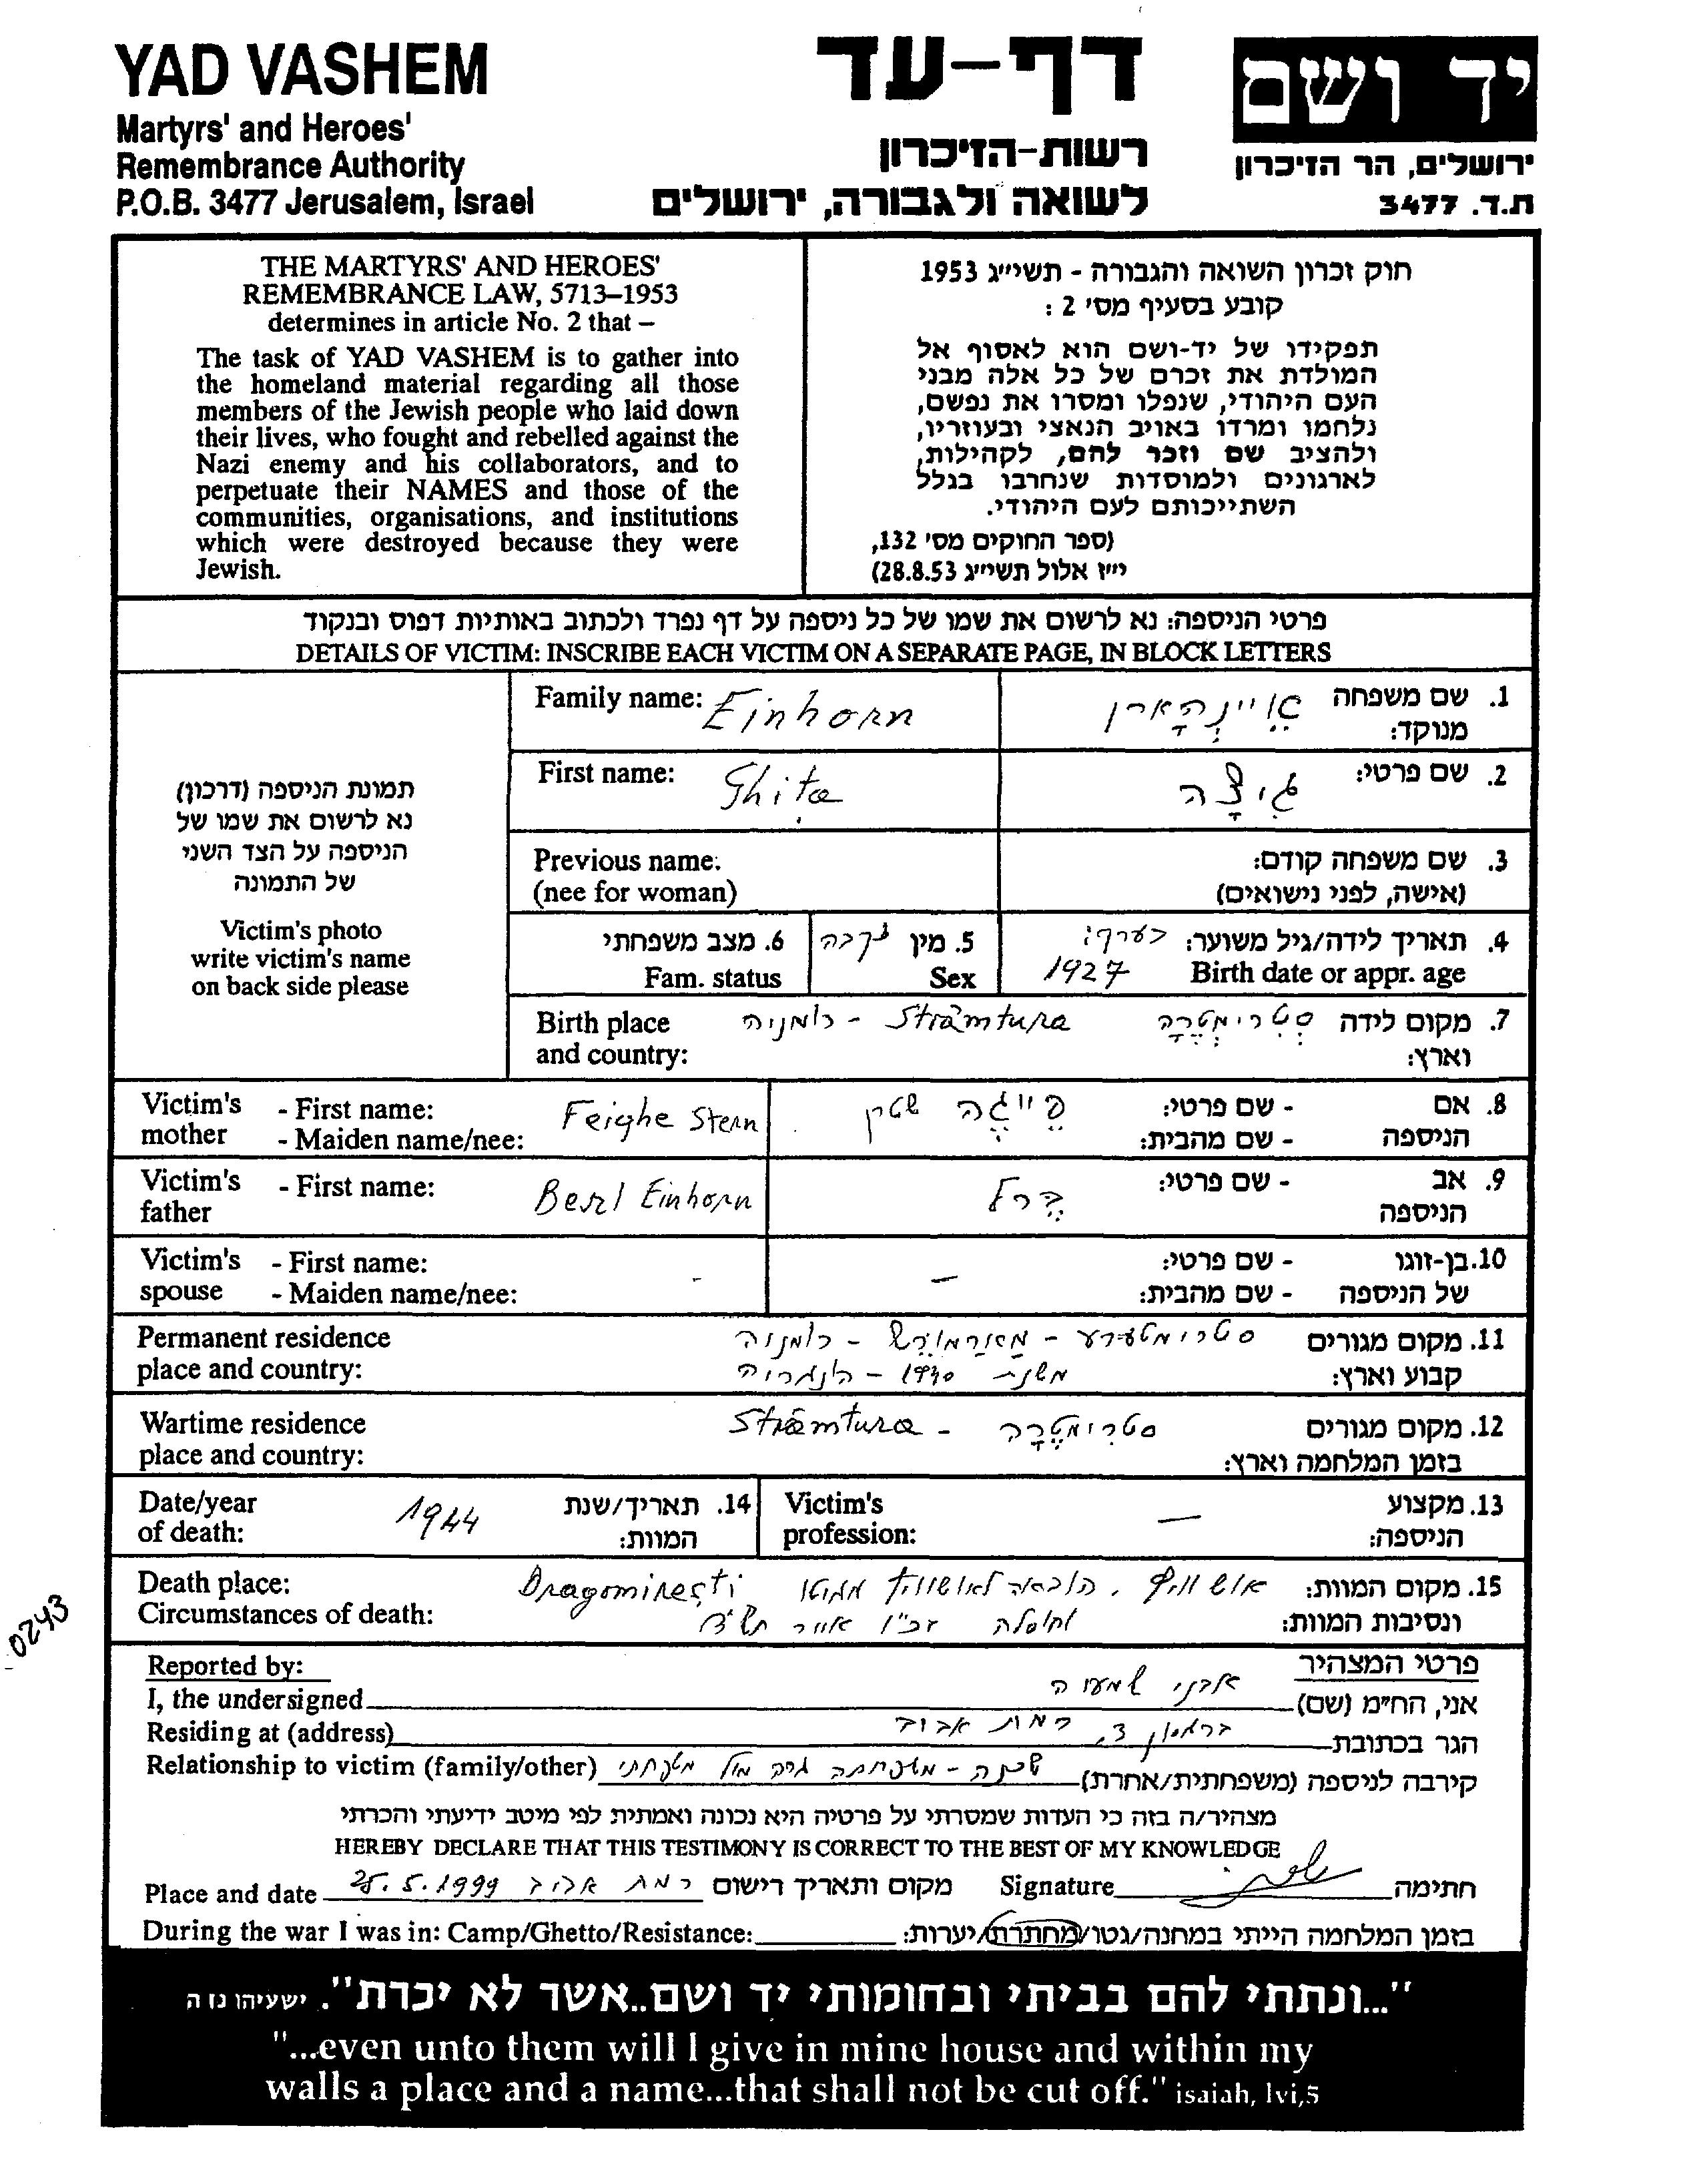 YAD VASHEM
Martyrs' and Heroes'
Remembrance Authority
P.O.B. 3477 Jerusalem, Israel
דף-עד
רשות-הזיכרון
לשואה ולגבורה, ירושלים
יד ושם
ירושלים, הר הזיכרון
ת.ד. 3477
THE MARTYRS' AND HEROES'
REMEMBRANCE LAW, 5713–1953
determines in article No. 2 that –
The task of YAD VASHEM is to gather into
the homeland material regarding all those
members of the Jewish people who laid down
their lives, who fought and rebelled against the
Nazi enemy and his collaborators, and to
perpetuate their NAMES and those of the
communities, organisations, and institutions
which were destroyed because they were
Jewish.
חוק זכרון השואה והגבורה - תשי״ג 1953
קובע בסעיף מס' 2 :
תפקידו של יד-ושם הוא לאסוף אל
המולדת את זכרם של כל אלה מבני
העם היהודי, שנפלו ומסרו את נפשם,
נלחמו ומרדו באויב הנאצי ובעוזריו,
ולהציב שם וזכר להם, לקהילות,
לארגונים ולמוסדות שנחרבו בגלל
השתייכותם לעם היהודי.
(ספר החוקים מס' 132,
י״ז אלול תשי״ג 28.8.53)
פרטי הניספה: נא לרשום את שמו של כל ניספה על דף נפרד ולכתוב באותיות דפוס ובנקוד
DETAILS OF VICTIM: INSCRIBE EACH VICTIM ON A SEPARATE PAGE, IN BLOCK LETTERS
תמונת הניספה (דרכון)
נא לרשום את שמו של
הניספה על הצד השני
של התמונה
Victim's photo
write victim's name
on back side please
Family name: Einhorn
1. שם משפחה אֵיינְהָארן
מנוקד:
First name: Ghita
2. שם פרטי: גִיצָה
Previous name:
(nee for woman)
3. שם משפחה קודם:
(אישה, לפני נישואים)
4. תאריך לידה/גיל משוער: בערך:
Birth date or appr. age 1927
5. מין נקבה
Sex
6. מצב משפחתי
Fam. status
Birth place Strâmtura - רומניה
and country:
7. מקום לידה סְטְרִימְטֶרָה
וארץ:
Victim's mother - First name: Feighe Stern
- Maiden name/nee:
8. אם הניספה - שם פרטי: פייגֶה שטרן
- שם מהבית:
Victim's father - First name: Berl Einhorn
9. אב הניספה - שם פרטי: בֶּרל
Victim's spouse - First name: -
- Maiden name/nee:
10. בן-זוגו של הניספה - שם פרטי: -
- שם מהבית:
Permanent residence
place and country:
11. מקום מגורים סטרימטערע - מַארַמוּרֶש - רומניה
קבוע וארץ: משנת 1940 - הונגריה
Wartime residence Strâmtura -
place and country:
12. מקום מגורים סטרִימְטֶרָה
בזמן המלחמה וארץ:
Date/year 1944
of death:
14. תאריך/שנת
המוות:
Victim's
profession: —
13. מקצוע
הניספה:
Death place: Dragomirești
Circumstances of death:
15. מקום המוות: אושוויץ. הובאה לאושוויץ מגיטו
ונסיבות המוות: וחוסלה בכ"ו אייר תש"ד
0243
Reported by:
פרטי המצהיר
I, the undersigned
אני, הח״מ (שם) אבני
Residing at (address)
הגר בכתובת 3, רמת אביב
Relationship to victim (family/other)
קירבה לניספה (משפחתית/אחרת) שכנה - משפחתה גרה מול משפחתי
מצהיר/ה בזה כי העדות שמסרתי על פרטיה היא נכונה ואמתית לפי מיטב ידיעתי והכרתי
HEREBY DECLARE THAT THIS TESTIMONY IS CORRECT TO THE BEST OF MY KNOWLEDGE
Place and date 25.5.1999 רמת אביב מקום ותאריך רישום
Signature
חתימה
During the war I was in: Camp/Ghetto/Resistance:
בזמן המלחמה הייתי במחנה/גטו/מחתרת/יערות:
"...ונתתי להם בביתי ובחומותי יד ושם..אשר לא יכרת". ישעיהו נו ה
"...even unto them will I give in mine house and within my
walls a place and a name...that shall not be cut off." isaiah, lvi,5